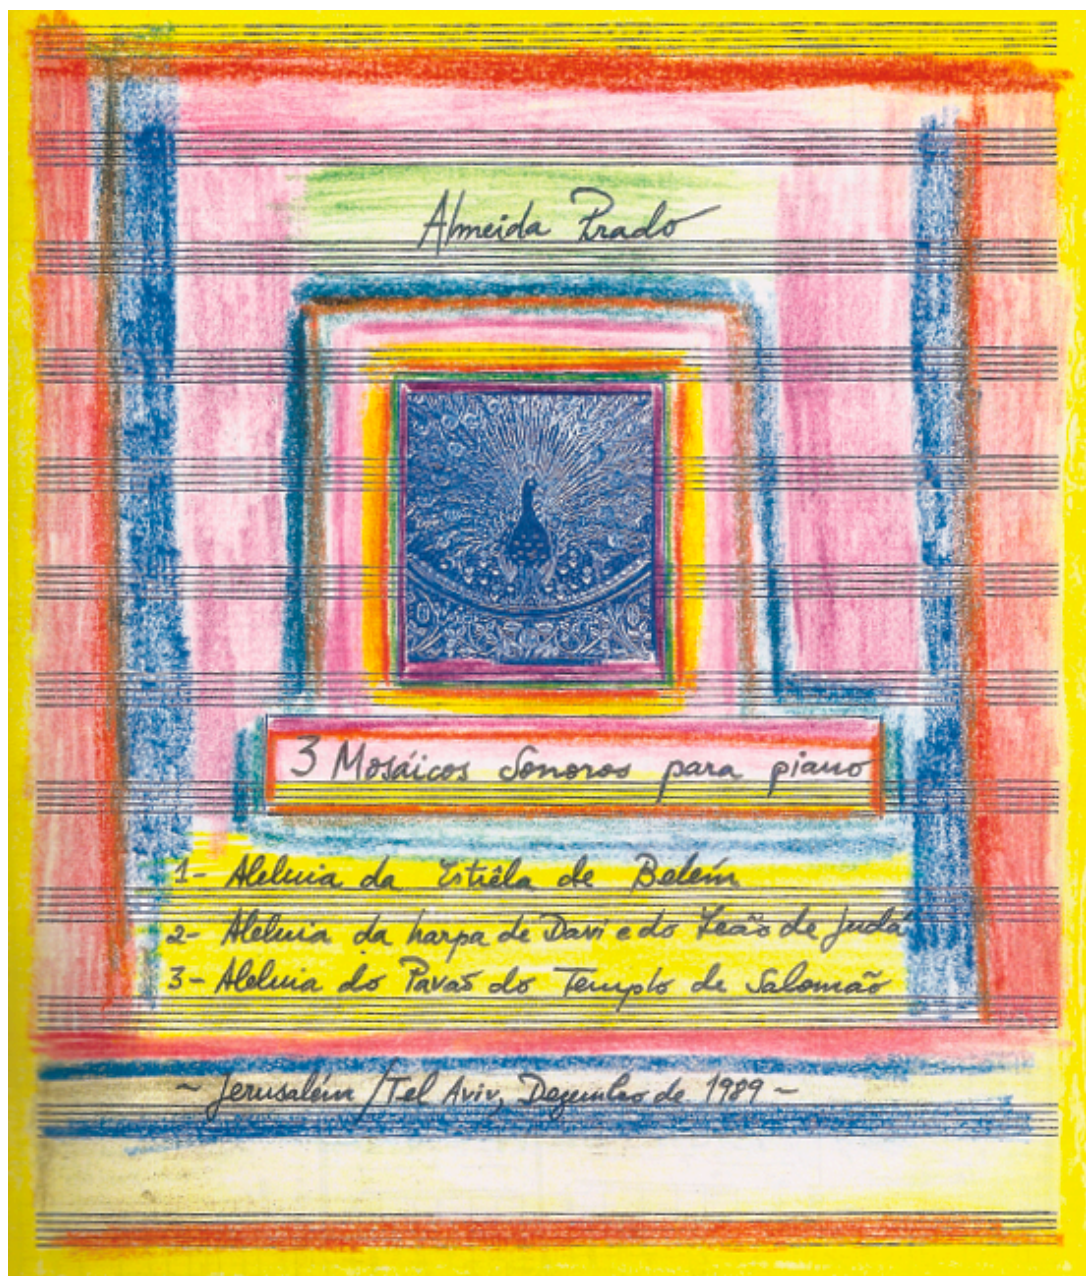 Almeida Prado
3 Mosáicos Sonoros para piano
1- Aleluia da Estrêla de Belém
2- Aleluia da harpa de Davi e do Leão de Judá
3- Aleluia do Pavão do Templo de Salomão
~ Jerusalém / Tel Aviv, Dezembro de 1989 ~